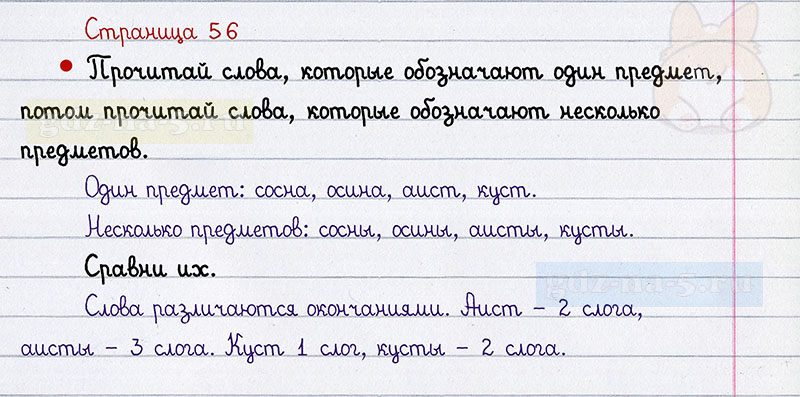 Страница 56
• Прочитай слова, которые обозначают один предмет,
потом прочитай слова, которые обозначают несколько
предметов.
Один предмет: сосна, осина, аист, куст.
Несколько предметов: сосны, осины, аисты, кусты.
Сравни их.
gdz-na-5.ru
Слова различаются окончаниями. Аист – 2 слога,
аисты – 3 слога. Куст 1 слог, кусты – 2 слога.
gdz-na-5.ru